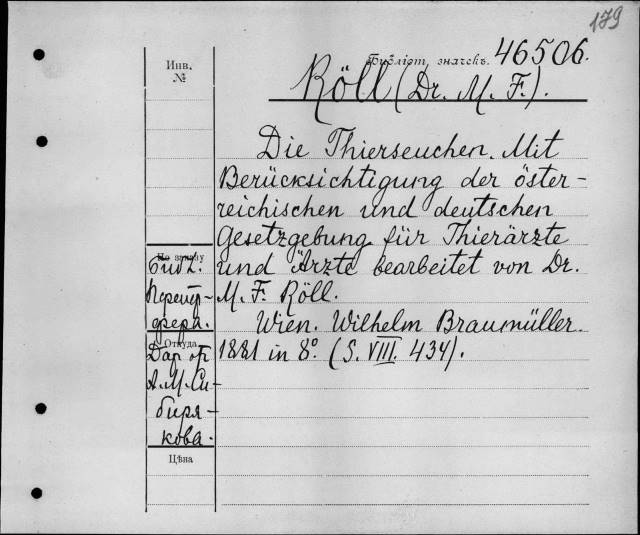 179
Библіот. значекъ. 46506.
Röll (Dr. M. F.).
Инв.
№
Die Thierseuchen. Mit
Berücksichtigung der öster-
reichischen und deutschen
Gesetzgebung für Thierärzte
und Ärzte bearbeitet von Dr.
M. F. Röll.
Wien. Wilhelm Braumüller.
1881 in 8° (S. VIII. 434).
По заказу
Библ.
Перетц-
Откуда
Дар от
А. М. Си-
биря-
кова.
Цѣна